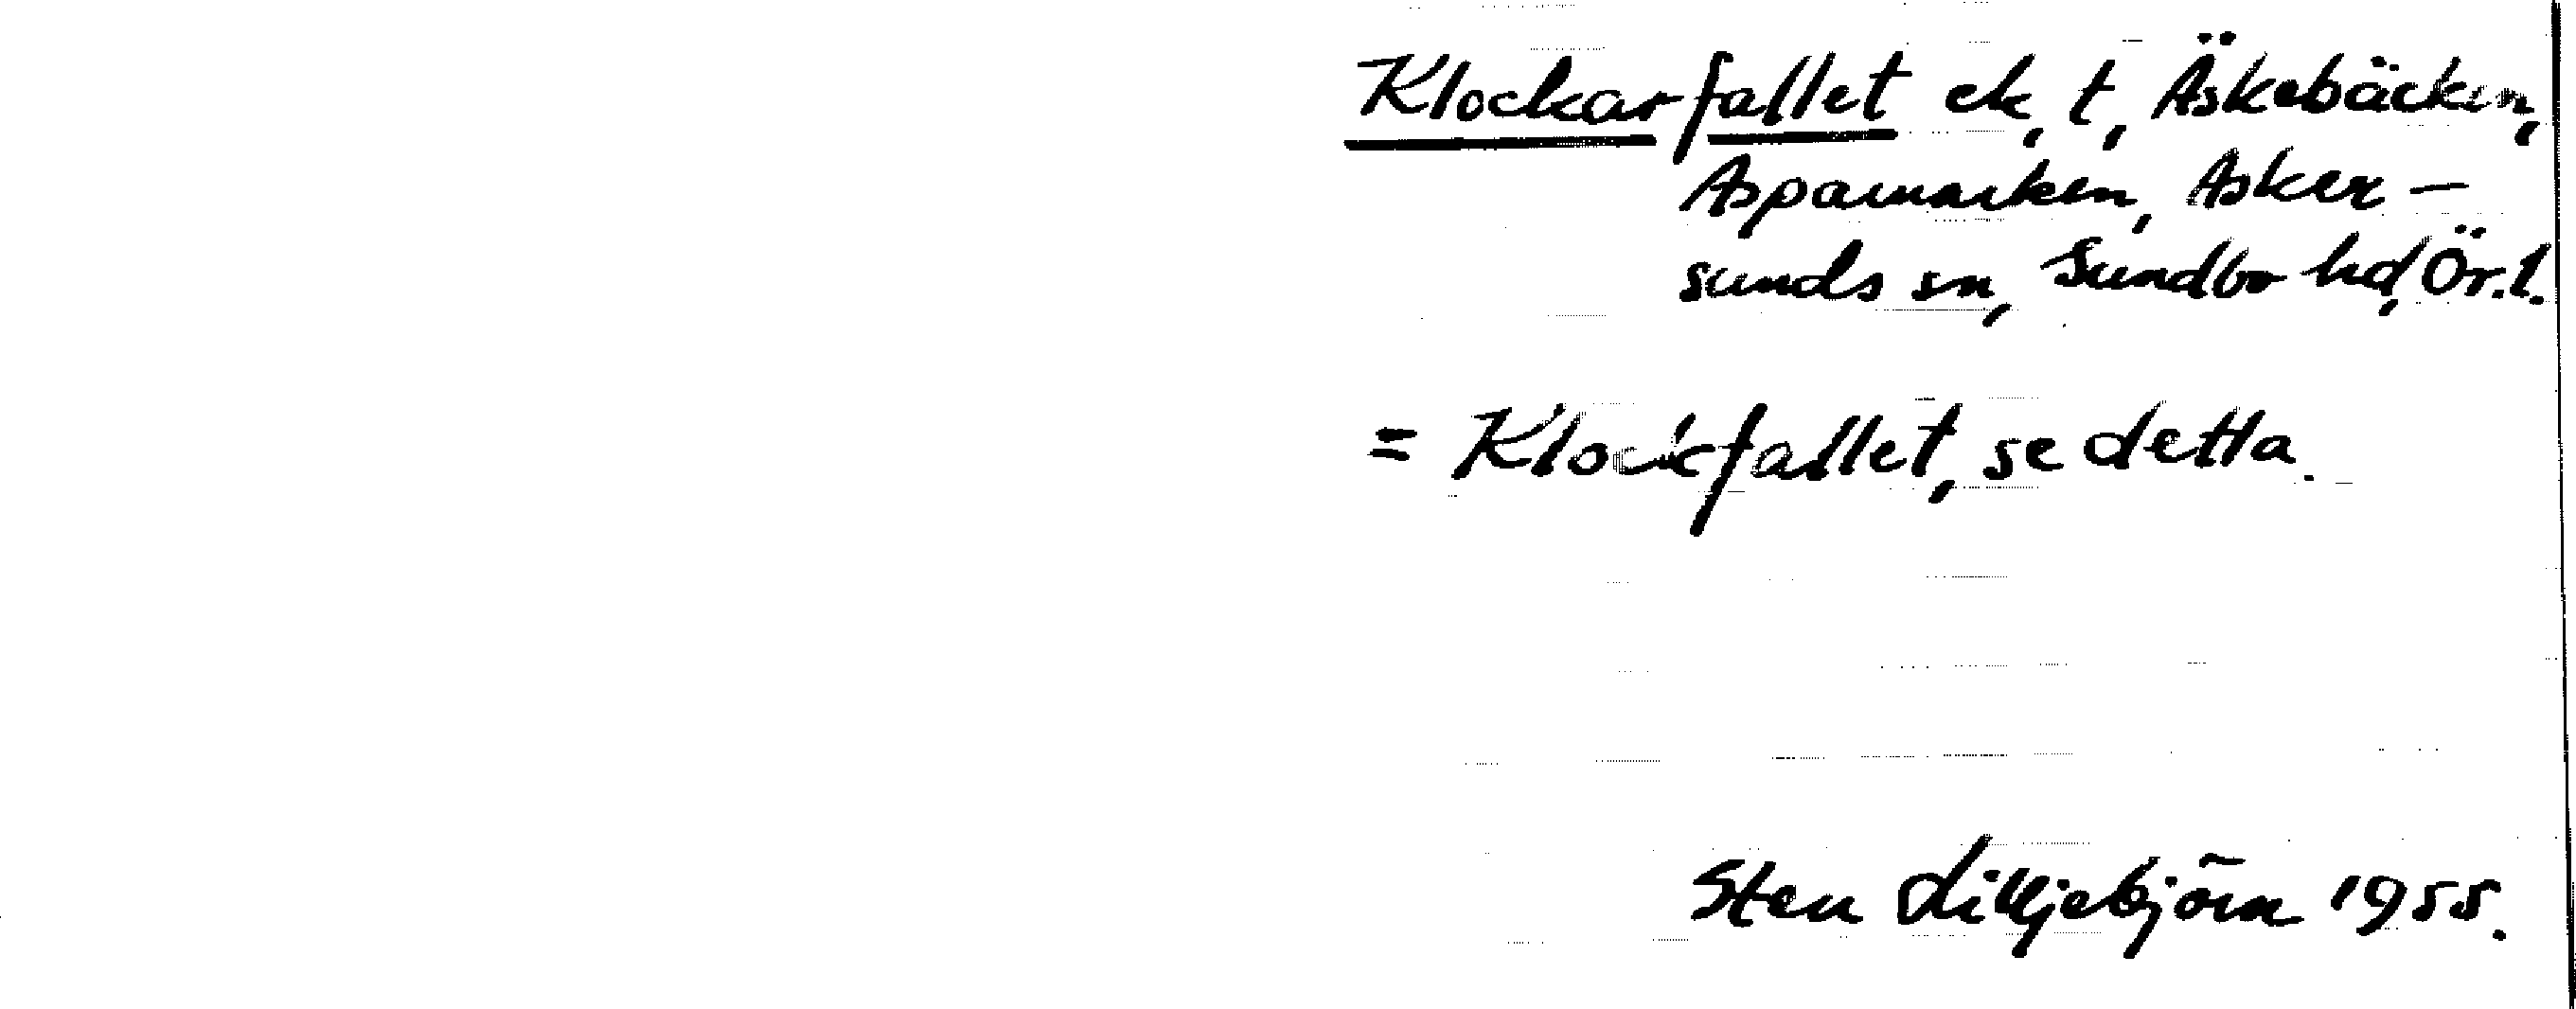 Klockarfallet ek, t, Äskebäcken,
Aspamarken, Asker-
sunds sn, Sundbo hd, Ör. l.
= Klockfallet, se detta.
Sten Lilljebjörn 1955.